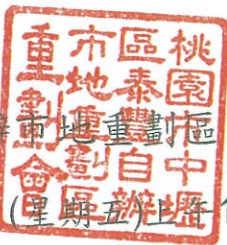 桃園市中壢
區泰豐自辦
市地重劃區
重劃會
市地重劃區
(星期五)上午